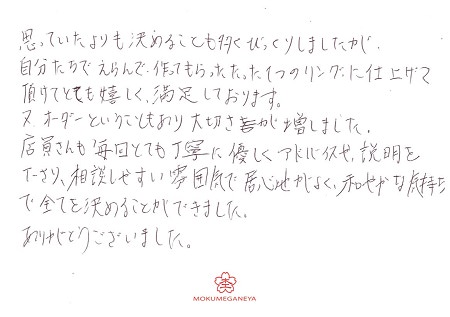 思っていたよりも決めることも多くびっくりしましたが、
自分たちでえらんで、作ってもらったたった1つのリングに仕上げて
頂けてとても嬉しく、満足しております。
又オーダーということもあり大切さが増しました。
店員さんも毎回とても丁寧に優しくアドバイスや、説明を
下さり、相談しやすい雰囲気で居心地がよく、和やかな気持ち
で全てを決めることができました。
ありがとうございました。
MOKUMEGANEYA